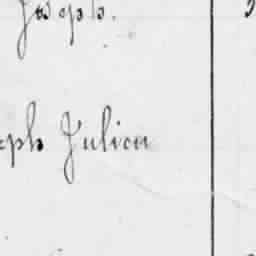 Joseph.
eph Julien